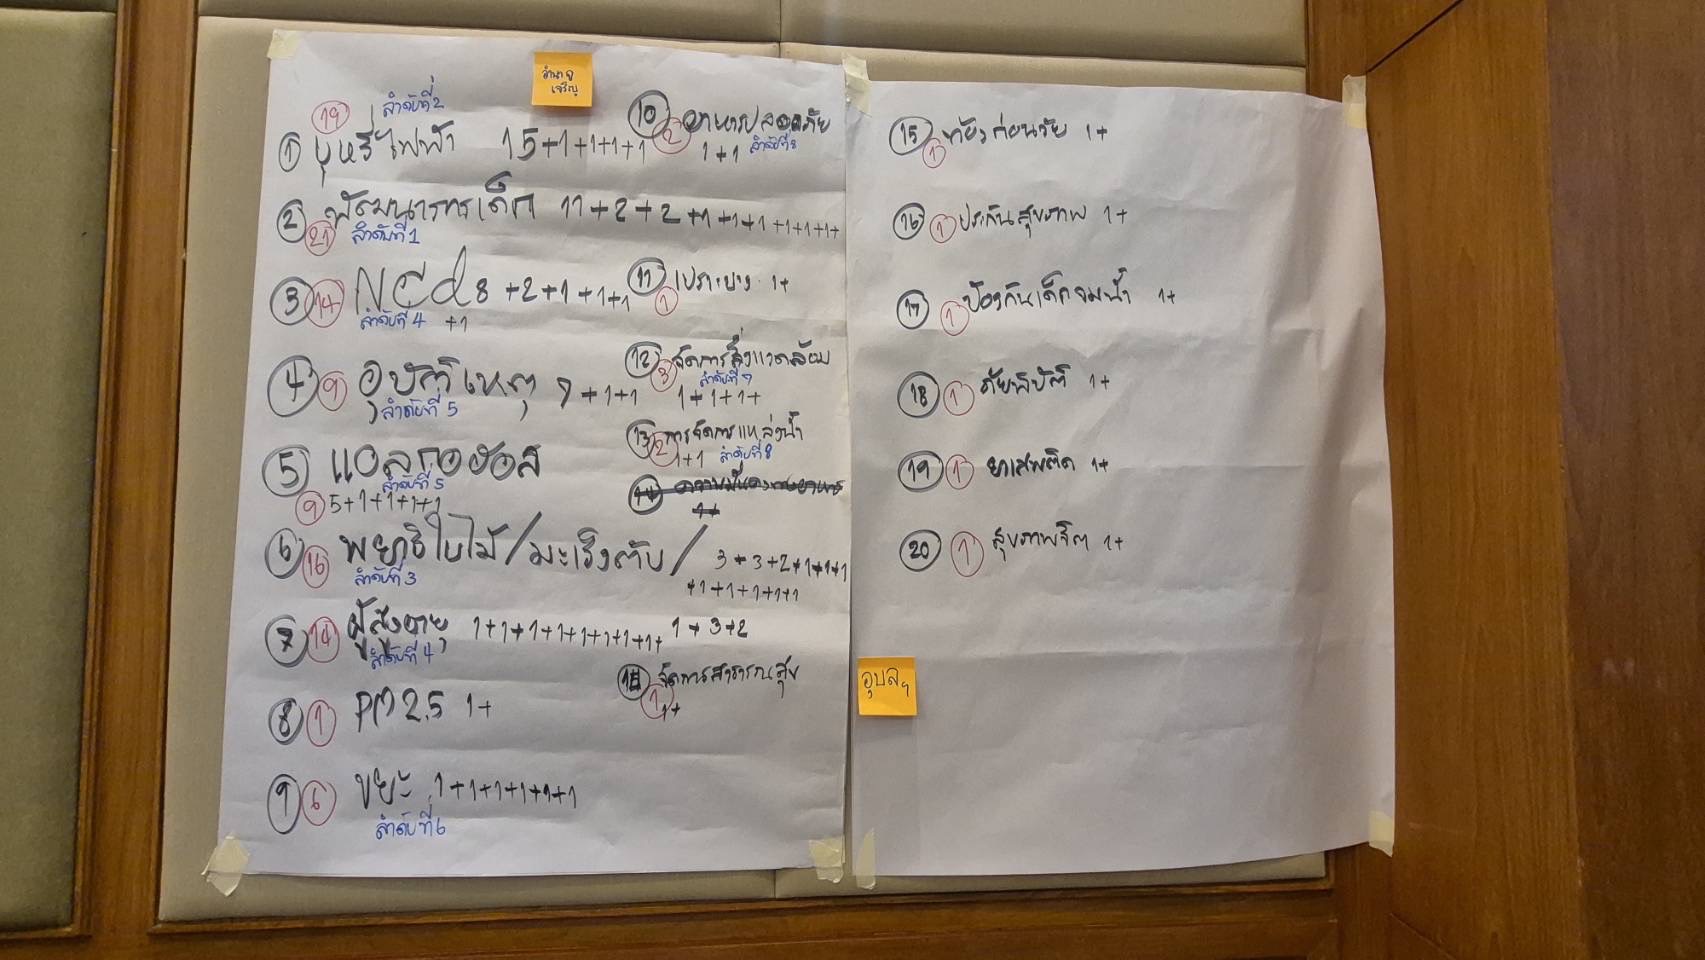 อำนาจ
เจริญ
19 ลำดับที่ 2
1 บุหรี่ไฟฟ้า 15+1+1+1+1
2 พัฒนาการเด็ก 11+2+2+1+1+1+1+1+1+
21 ลำดับที่ 1
3 14 NCd 8+2+1+1+1
ลำดับที่ 4 +1
4 9 อุบัติเหตุ 7+1+1
ลำดับที่ 5
5 แอลกอฮอล
ลำดับที่ 5
9 5+1+1+1+1
6 16 พยาธิใบไม้/มะเร็งตับ/ 3+3+2+1+1+1
ลำดับที่ 3 +1+1+1+1+1
7 14 ผู้สูงอายุ 1+1+1+1+1+1+1+1+ 1+3+2
ลำดับที่ 4
8 1 PM 2.5 1+
9 6 ขยะ 1+1+1+1+1+1
ลำดับที่ 6
10 อาหารปลอดภัย
2 1+1 ลำดับที่ 8
11 เปราะบาง 1+
1
12 จัดการสิ่งแวดล้อม
3 ลำดับที่ 7
1+1+1+
13 การจัดการแหล่งน้ำ
2 1+1 ลำดับที่ 8
14
1+
14 จัดการสาธารณสุข
1 1+
15 ท้องก่อนวัย 1+
1
16 1 ประกันสุขภาพ 1+
17 1 ป้องกันเด็กจมน้ำ 1+
18 1 ภัยพิบัติ 1+
19 1 ยาเสพติด 1+
20 1 สุขภาพจิต 1+
อุบลฯ